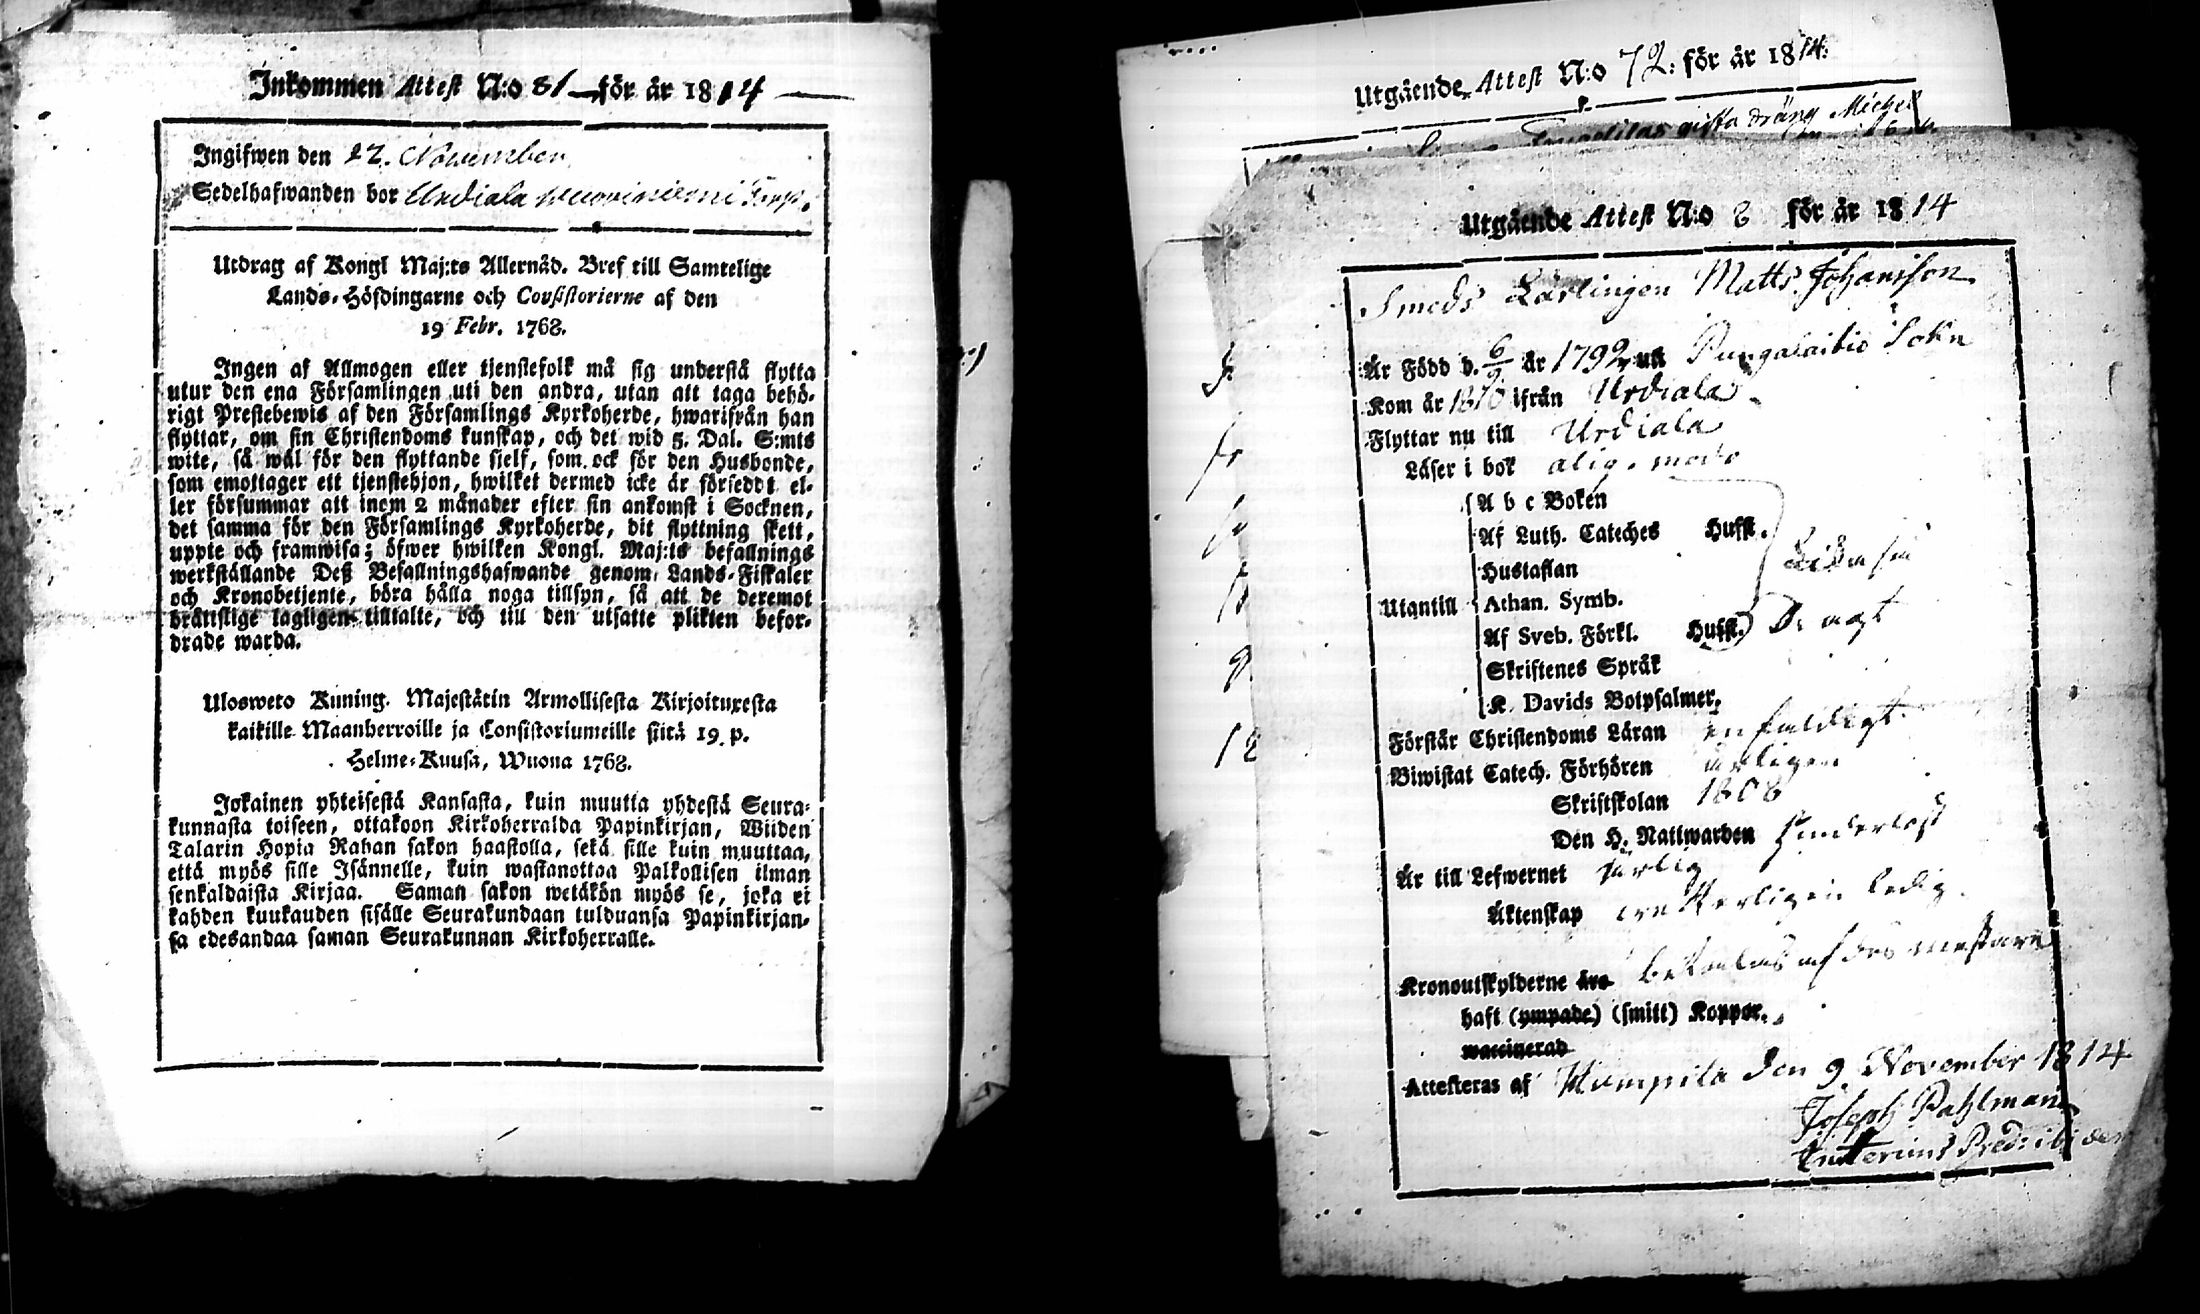 Inkommen Attest N:o 81 för år 1814
Ingifwen den 22. November
Sedelhafwanden bor Urdiala
Utdrag af Kongl Maj:ts Allernåd. Bref till Samtelige
Lands-Höfdingarne och Consistorierne af den
19 Febr. 1768.
Ingen af Allmogen eller tjenstefolk må sig understå flytta
utur den ena Församlingen uti den andra, utan att taga behö-
rigt Prestebewis af den Församlings Kyrkoherde, hwarifrån han
flyttar, om sin Christendoms kunskap, och det wid 5. Dal. S:mts
wite, så wäl för den flyttande sjelf, som ock för den Husbonde,
som emottager ett tjenstehjon, hwilket dermed icke är förseddt el-
ler försummar att inom 2 månader efter sin ankomst i Socknen,
det samma för den Församlings Kyrkoherde, dit flyttning skett,
uppte och framwisa; öfwer hwilken Kongl. Maj:ts befallnings
werkställande Deß Befallningshafwande genom Lands-Fiskaler
och Kronobetjente, böra hålla noga tillsyn, så att de deremot
bråttslige lagligen tilltalte, och till den utsatte plikten befor-
drade warda.
Ulosweto Kuning. Majestätin Armollisesta Kirjoituxesta
kaikille Maanherroille ja Consistoriumeille siitä 19. p.
Helme-Kuusa, Wuona 1768.
Jokainen yhteisestä Kansasta, kuin muutta yhdestä Seura-
kunnasta toiseen, ottakoon Kirkoherralda Papinkirjan, Wiiden
Talarin Hopia Rahan sakon haastolla, sekä sille kuin muuttaa,
että myös sille Isännelle, kuin wastanottaa Palkollisen ilman
senkaldaista Kirjaa. Saman sakon wetäkön myös se, joka ei
kahden kuukauden sisälle Seurakundaan tulduansa Papinkirjan-
sa edesandaa saman Seurakunnan Kirkoherralle.
Utgående Attest N:o 72: för år 1814:
gifta dräng Michel
Utgående Attest N:o 8 för år 1814
Smeds Lärlingen Matts Johansson
Är Född d. 6/9 år 1792 uti Pungalaitio Sokn
Kom år 1810 ifrån Urdiala
Flyttar nu till Urdiala
Läser i bok
A b c Boken
Af Luth. Cateches Hufst.
Hustaflan
Utantill Athan. Symb.
Af Sveb. Förkl. Hufst.
Skriftenes Språk
K. Davids Botpsalmer.
Förstår Christendoms Läran enfaldigt
Biwistat Catech. Förhören årligen
Skriftskolan 1808
Den H. Nattwarden
Är till Lefwernet
Äktenskap ledig
Kronoutskylderne äro betalas af
haft (ympade) (smitt) Koppor.
waccinerad
Attesteras af Humpila den 9. November 1814
Joseph Pahlman